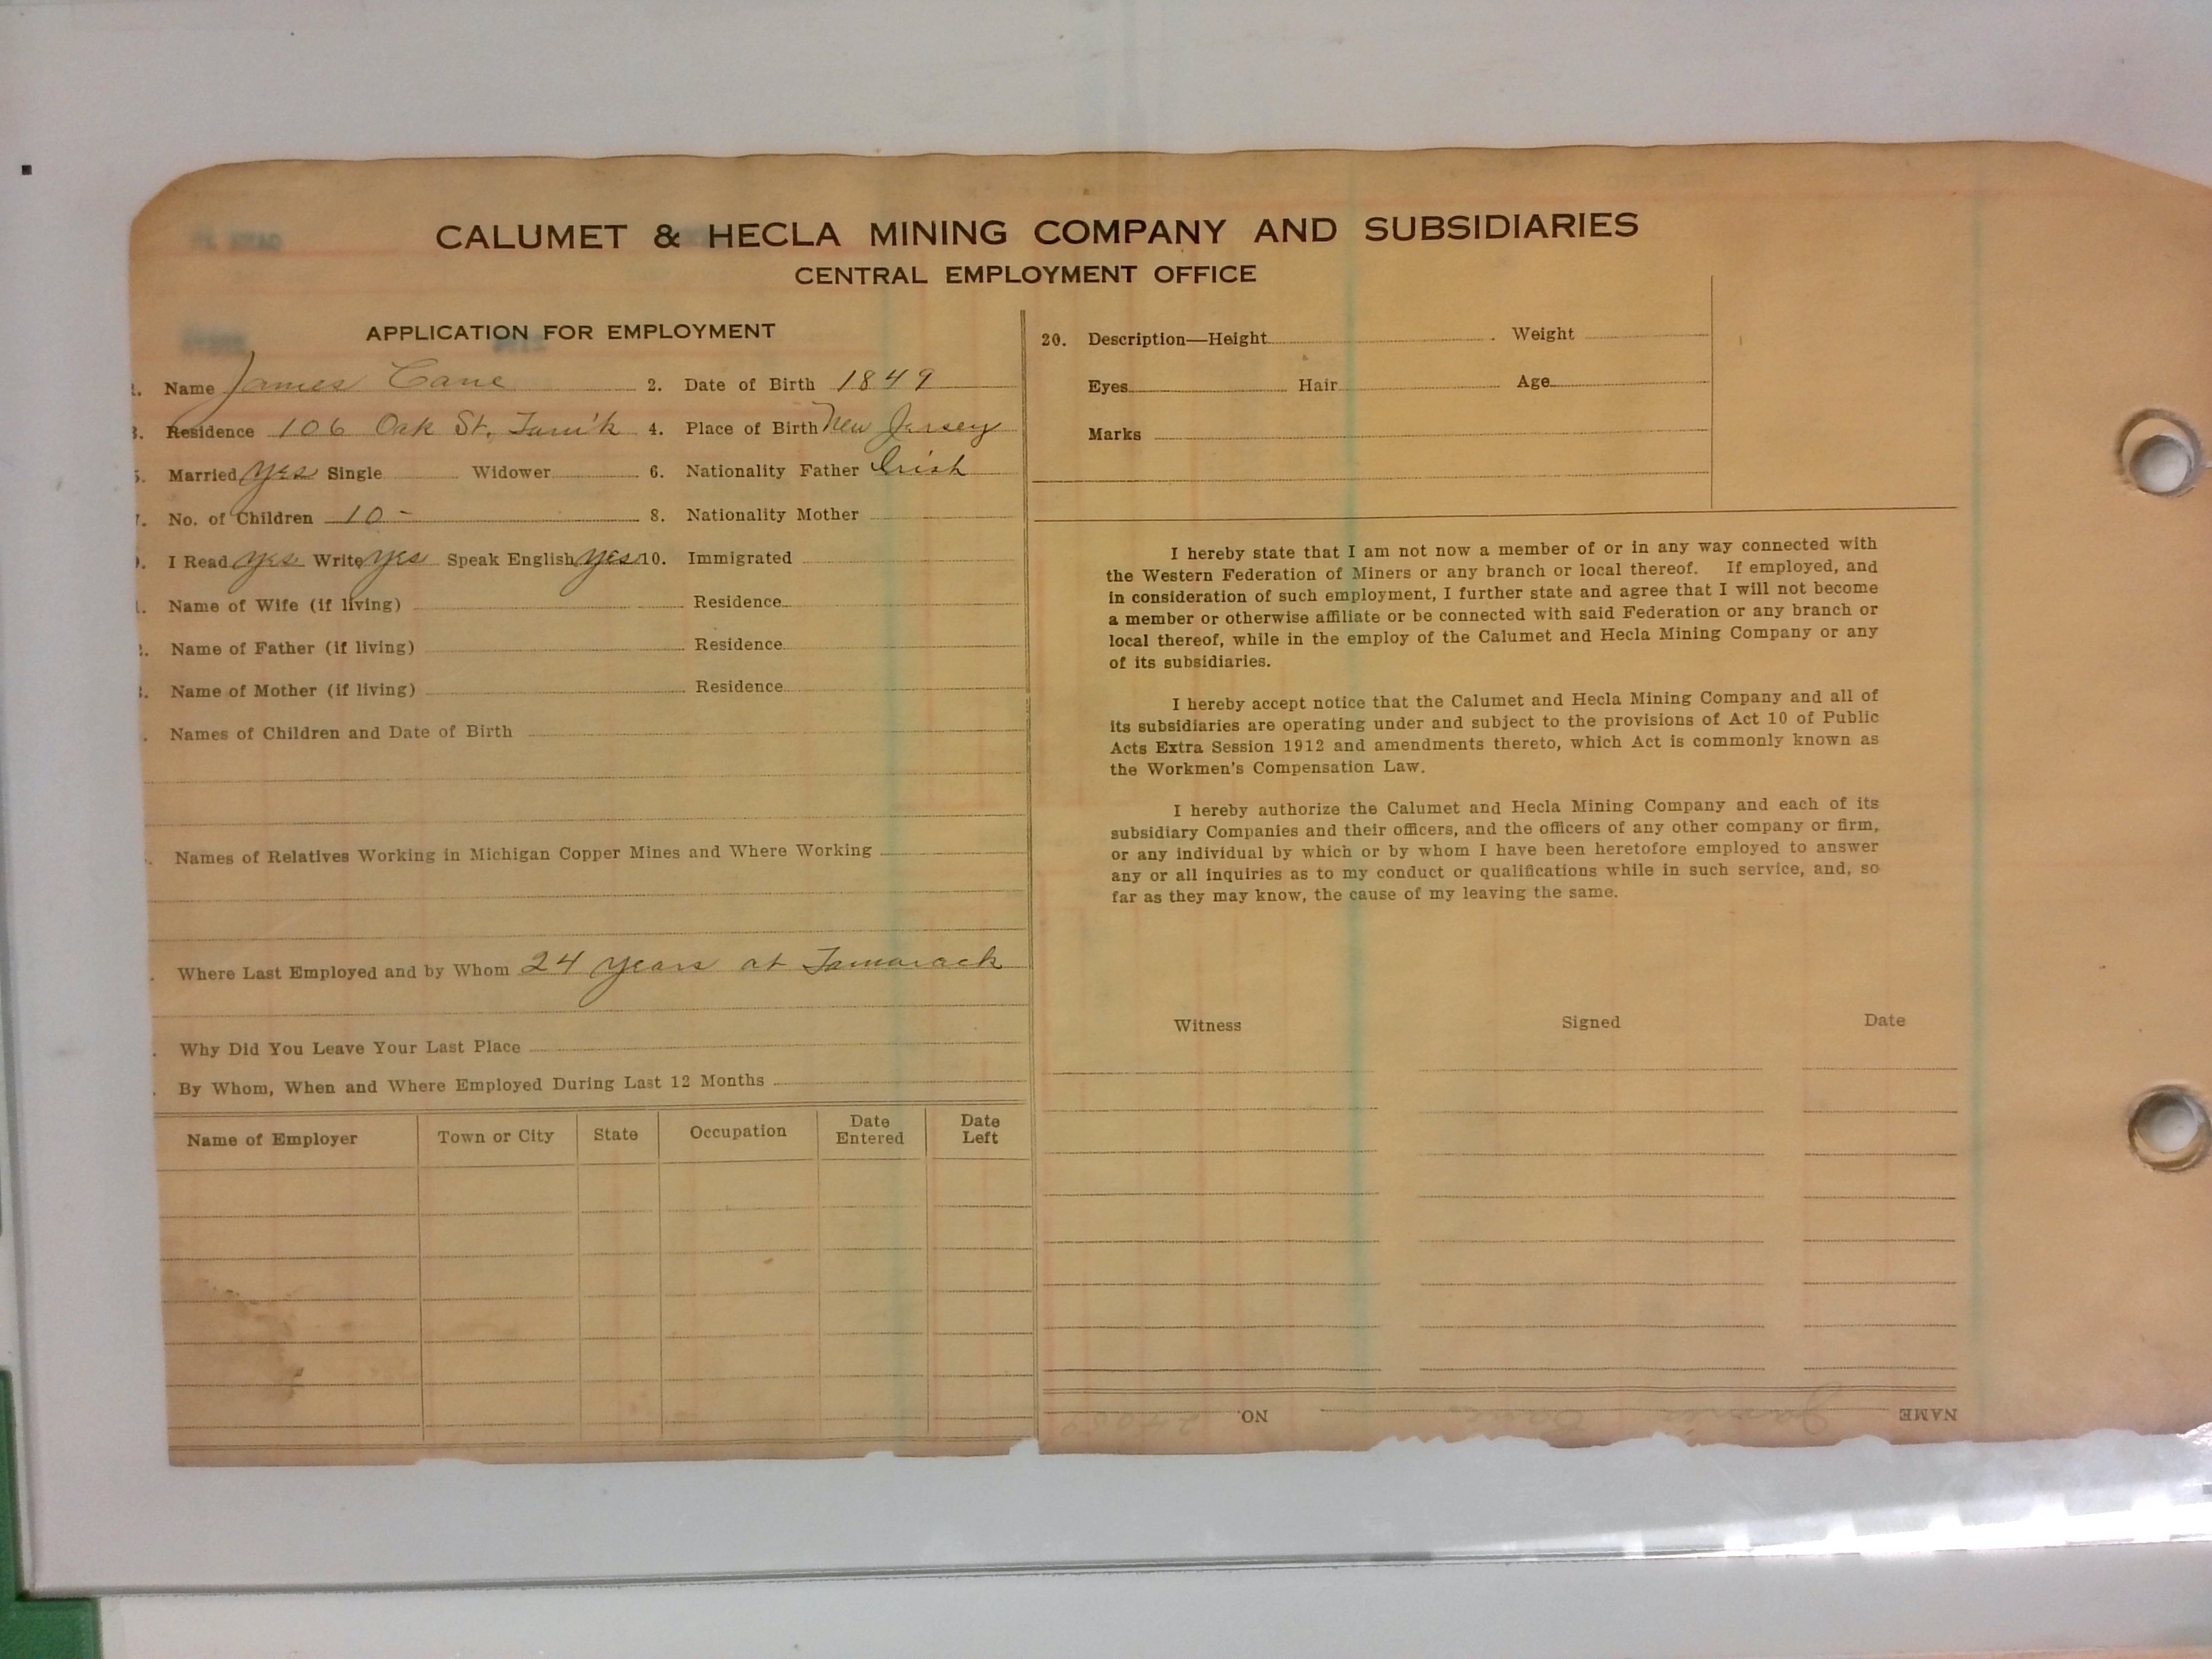 CALUMET & HECLA MINING COMPANY AND SUBSIDIARIES
CENTRAL EMPLOYMENT OFFICE
APPLICATION FOR EMPLOYMENT
1. Name James Cane 2. Date of Birth 1849
3. Residence 106 Oak St, Tam'k 4. Place of Birth New Jersey
5. Married yes Single Widower 6. Nationality Father Irish
7. No. of Children 10 - 8. Nationality Mother
9. I Read yes Write yes Speak English yes 10. Immigrated
Name of Wife (if living) Residence
Name of Father (if living) Residence
Name of Mother (if living) Residence
Names of Children and Date of Birth
Names of Relatives Working in Michigan Copper Mines and Where Working
Where Last Employed and by Whom 24 years at Tamarack
Why Did You Leave Your Last Place
By Whom, When and Where Employed During Last 12 Months
Name of Employer Town or City State Occupation Date Entered Date Left
20. Description—Height Weight
Eyes Hair Age
Marks
I hereby state that I am not now a member of or in any way connected with
the Western Federation of Miners or any branch or local thereof. If employed, and
in consideration of such employment, I further state and agree that I will not become
a member or otherwise affiliate or be connected with said Federation or any branch or
local thereof, while in the employ of the Calumet and Hecla Mining Company or any
of its subsidiaries.
I hereby accept notice that the Calumet and Hecla Mining Company and all of
its subsidiaries are operating under and subject to the provisions of Act 10 of Public
Acts Extra Session 1912 and amendments thereto, which Act is commonly known as
the Workmen's Compensation Law.
I hereby authorize the Calumet and Hecla Mining Company and each of its
subsidiary Companies and their officers, and the officers of any other company or firm,
or any individual by which or by whom I have been heretofore employed to answer
any or all inquiries as to my conduct or qualifications while in such service, and, so
far as they may know, the cause of my leaving the same.
Witness Signed Date
NAME James Cane NO.